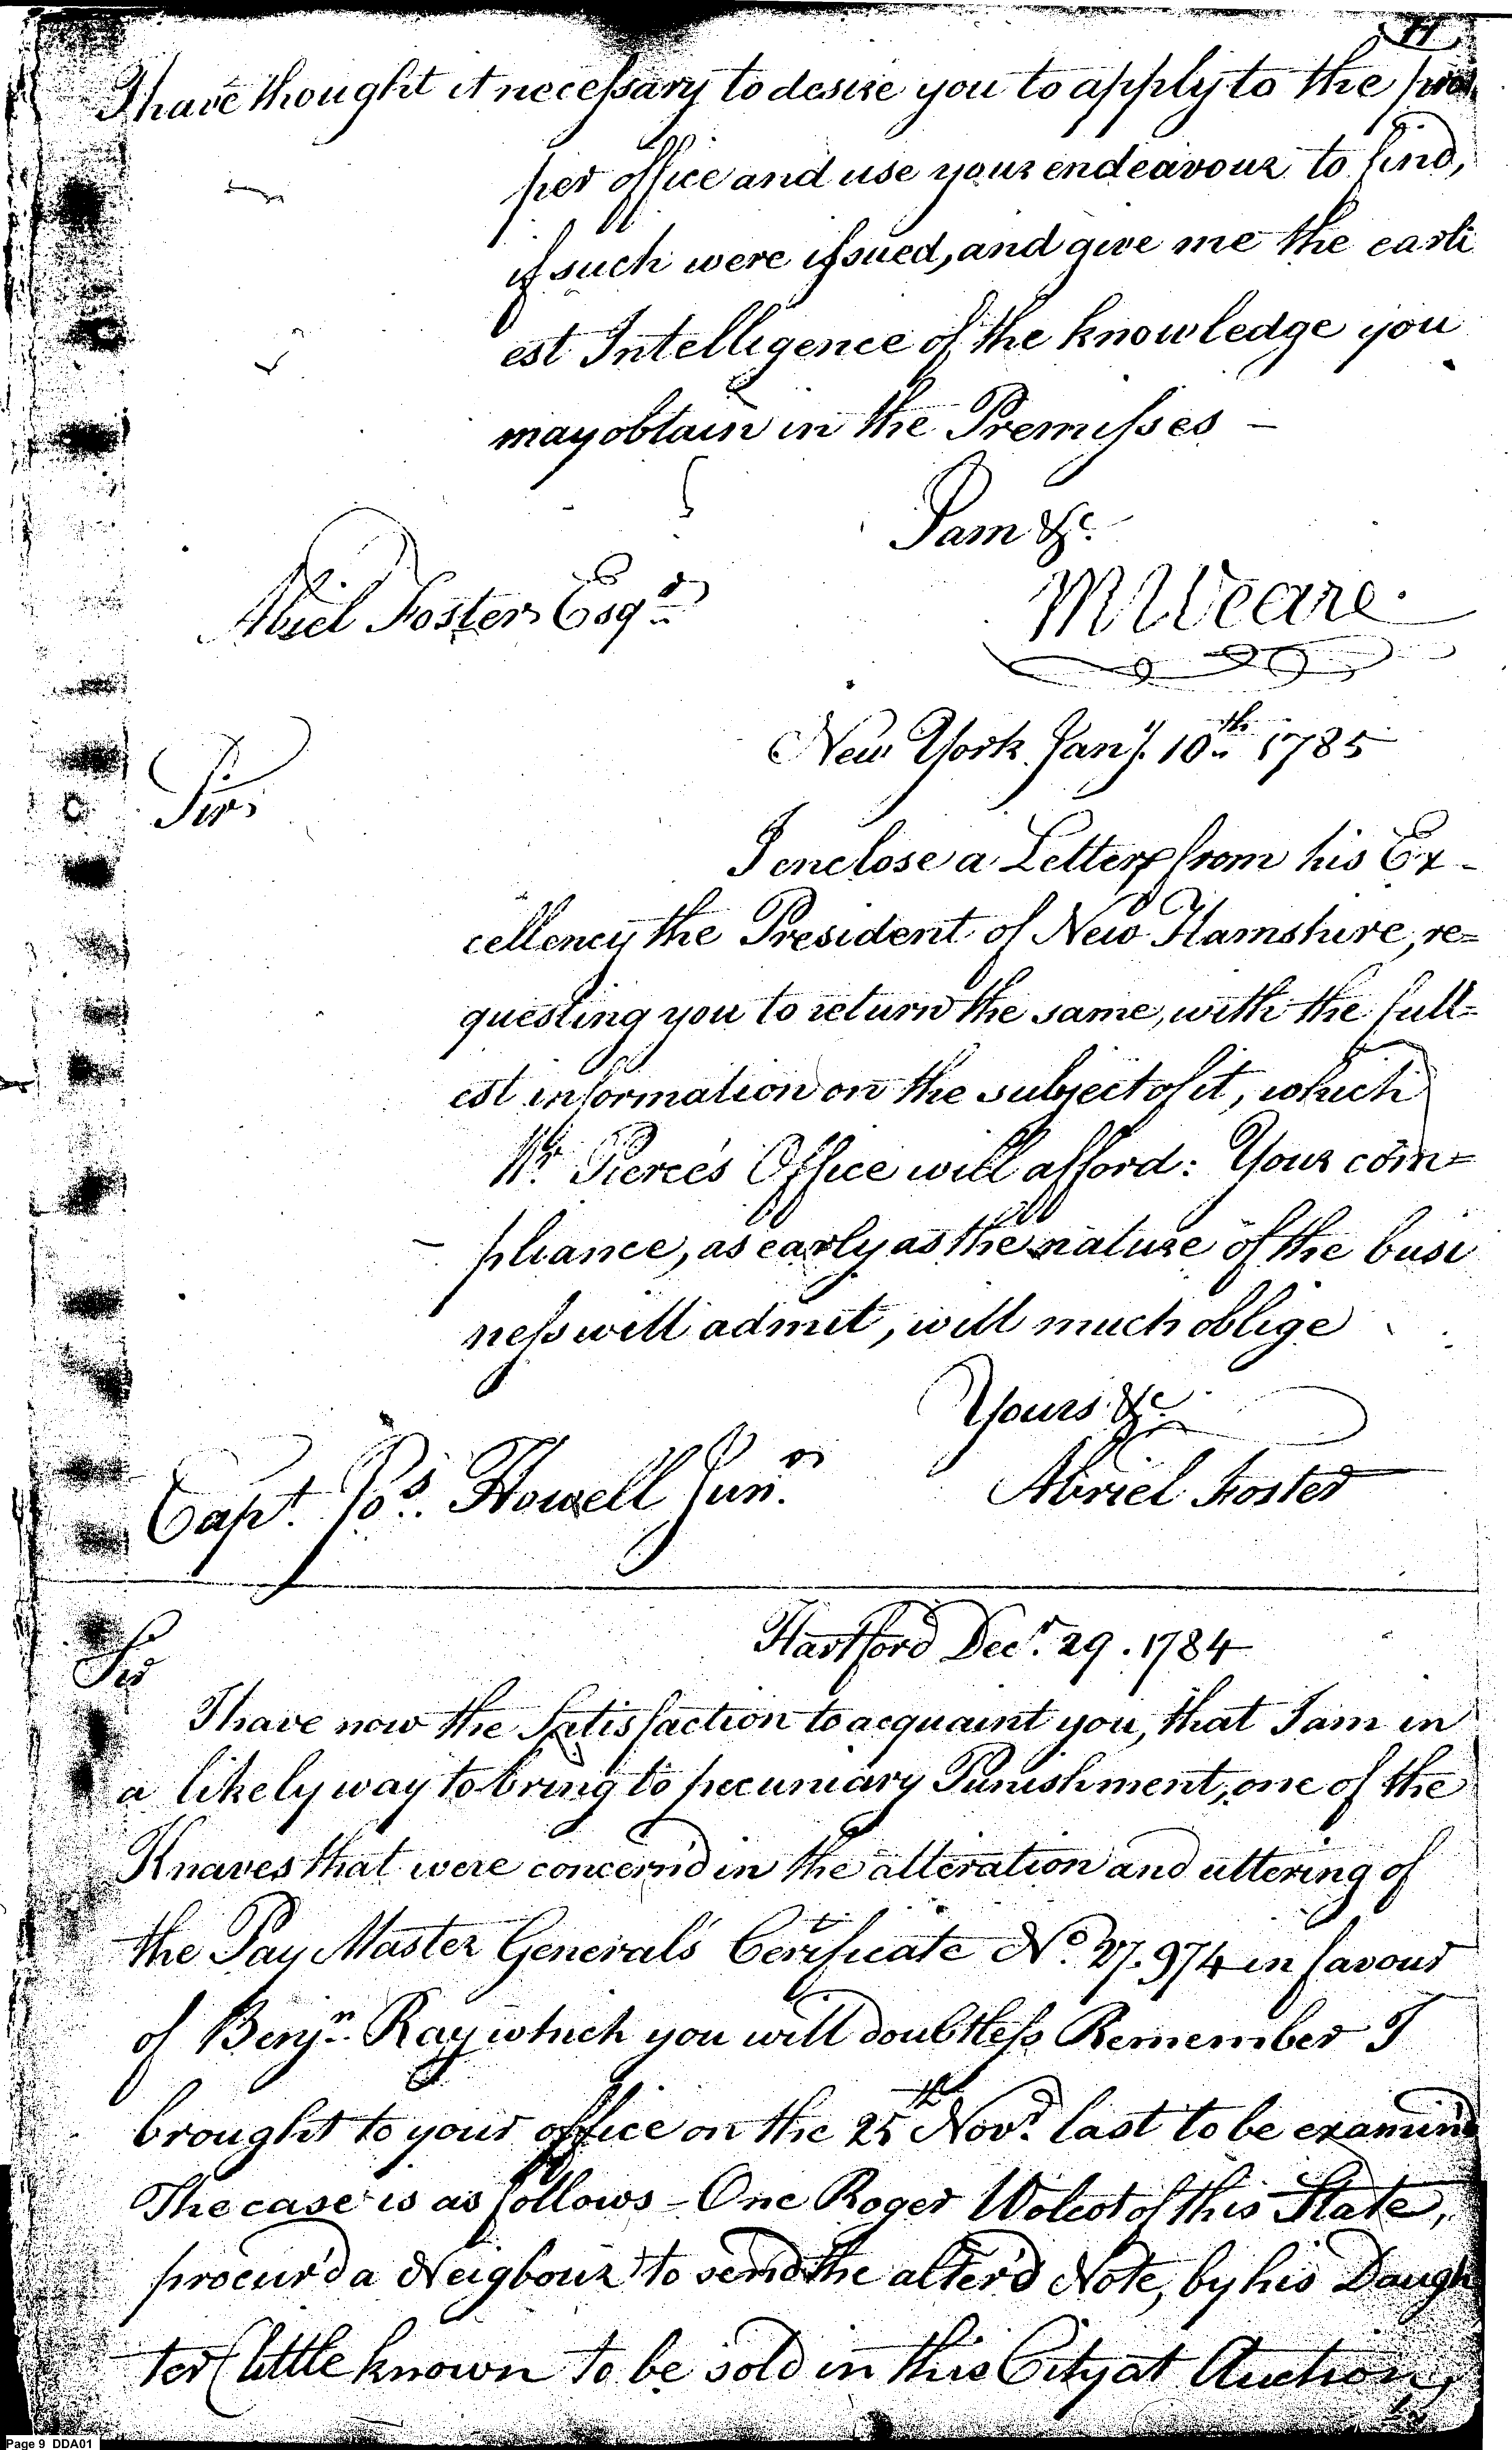 11
I have thought it necessary to desire you to apply to the pro
per office and use your endeavour to find,
if such were issued, and give me the earli
est Intelligence of the knowledge you
may obtain in the Premisses -
I am &c.
Abiel Foster Esqr
M Weare.
New York Jany. 10th 1785
Sir,
I enclose a Letter from his Ex-
cellency the President of New Hamshire, re=
questing you to return the same, with the full=
est information on the subject of it, which
Mr. Pierce's Office will afford: Your com=
- pliance, as early as the nature of the busi
ness will admit, will much oblige
Yours &c.
Capt. Jos. Howell Junr.
Abriel Foster
Hartford Decr. 29. 1784
Sir
I have now the Satisfaction to acquaint you, that I am in
a likely way to bring to pecuniary Punishment, one of the
Knaves that were concern'd in the alteration and uttering of
the Pay Master General's Cerificate No. 27.974 in favour
of Benjn. Ray which you will doubtless Remember I
brought to your office on the 25th Novr. last to be examin'd
The case is as follows - One Roger Wolcot of this State,
procur'd a Neigbour to send the alter'd Note, by his Daugh
ter (little known to be sold in this City at Auction,
Page 9 DDA01